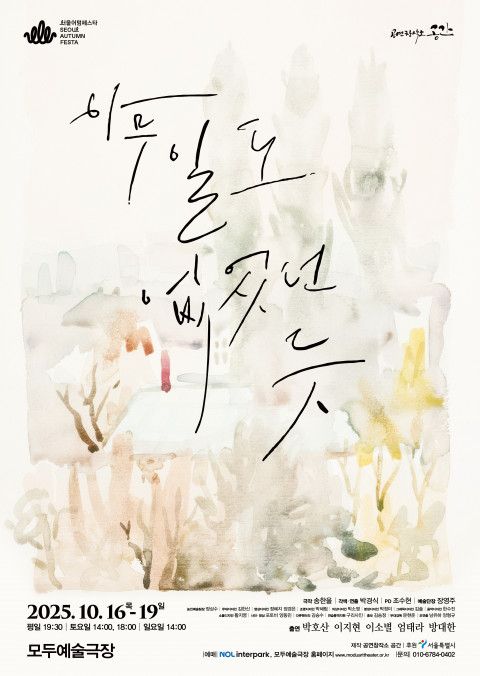 서울어텀페스타
SEOUL
AUTUMN
FESTA
공연창작소 공간
아무일도
없었던
듯
극작 송한울 | 각색·연출 박경식 | PD 조수현 | 예술단장 장영주
2025. 10. 16목-19일
평일 19:30 | 토요일 14:00, 18:00 | 일요일 14:00
출연 박호산 이지현 이소별 엄태라 방대한
모두예술극장
제작 공연창작소 공간 | 후원 서울특별시
|예매| NOL interpark, 모두예술극장 홈페이지 www.moduarttheater.or.kr |문의| 010-6784-0402